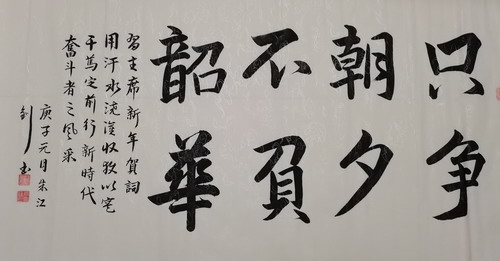 只争
朝夕
不負
韶華
習主席新年賀詞
用汗水浇灌收获以实
干篤定前行新時代
奮斗者之風采
庚子元月朱江
书